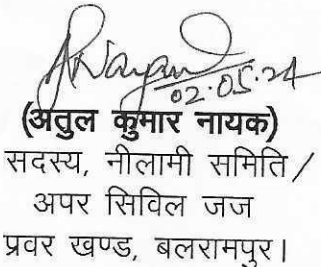 02.05.24
(अतुल कुमार नायक)
सदस्य, नीलामी समिति /
अपर सिविल जज
प्रवर खण्ड, बलरामपुर।